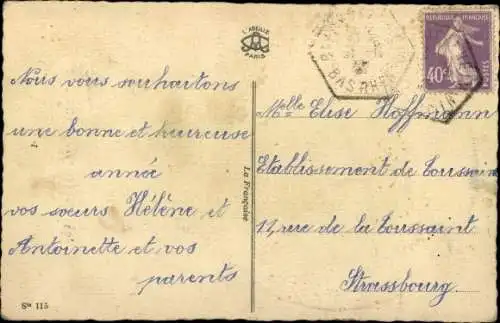 L'ABEILLE
PARIS
Nous vous souhaitons
une bonne et heureuse
année
vos sœurs Hélène et
Antoinette et vos
parents
Sⁱᵉ 115
La Française
BAS RHIN
40c
POSTES
Melle Elise Hoffmann
Etablissement de Toussaint
12, rue de la Toussaint
Strassbourg.